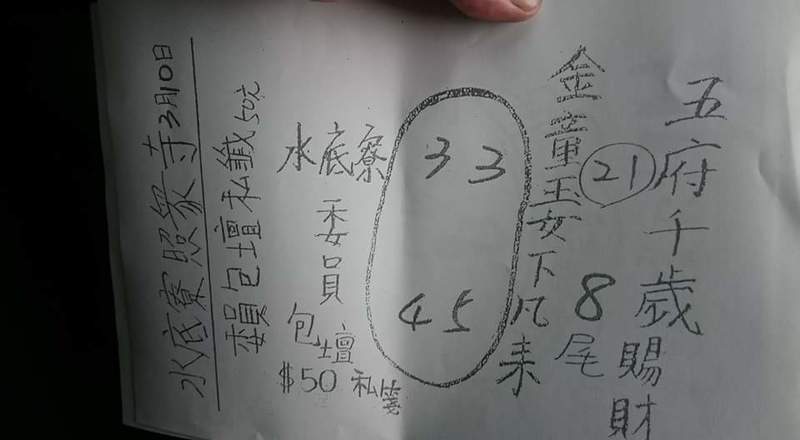 五府千歲賜財
21
8尾
金童玉女下凡來
33
45
水底寮
委員
包壇
$50 私
委員包壇私籤50元
水底寮照眾寺3月10日